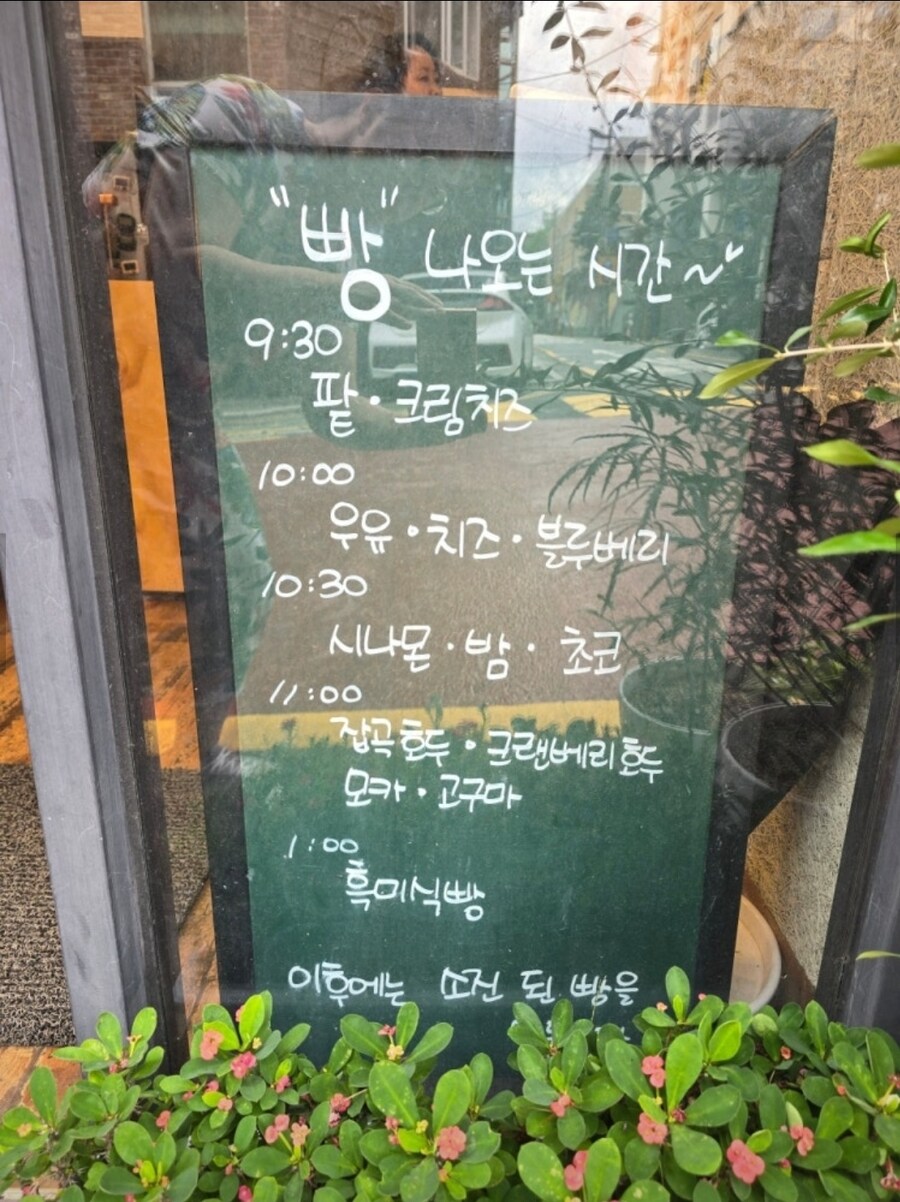 "빵" 나오는 시간~
9:30
팥·크림치즈
10:00
우유·치즈·블루베리
10:30
시나몬·밤·초코
11:00
잡곡호두·크랜베리호두
모카·고구마
1:00
흑미식빵
이후에는 소진 된 빵을